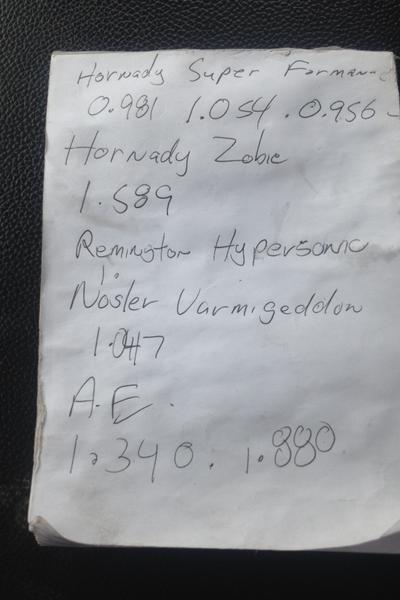 Hornady Super Formance
0.981 1.054 . 0.956 -
Hornady Zobie
1.589
Remington Hypersonic
1.
Nosler Varmigeddon
1.047
A.E.
1.340. 1.880